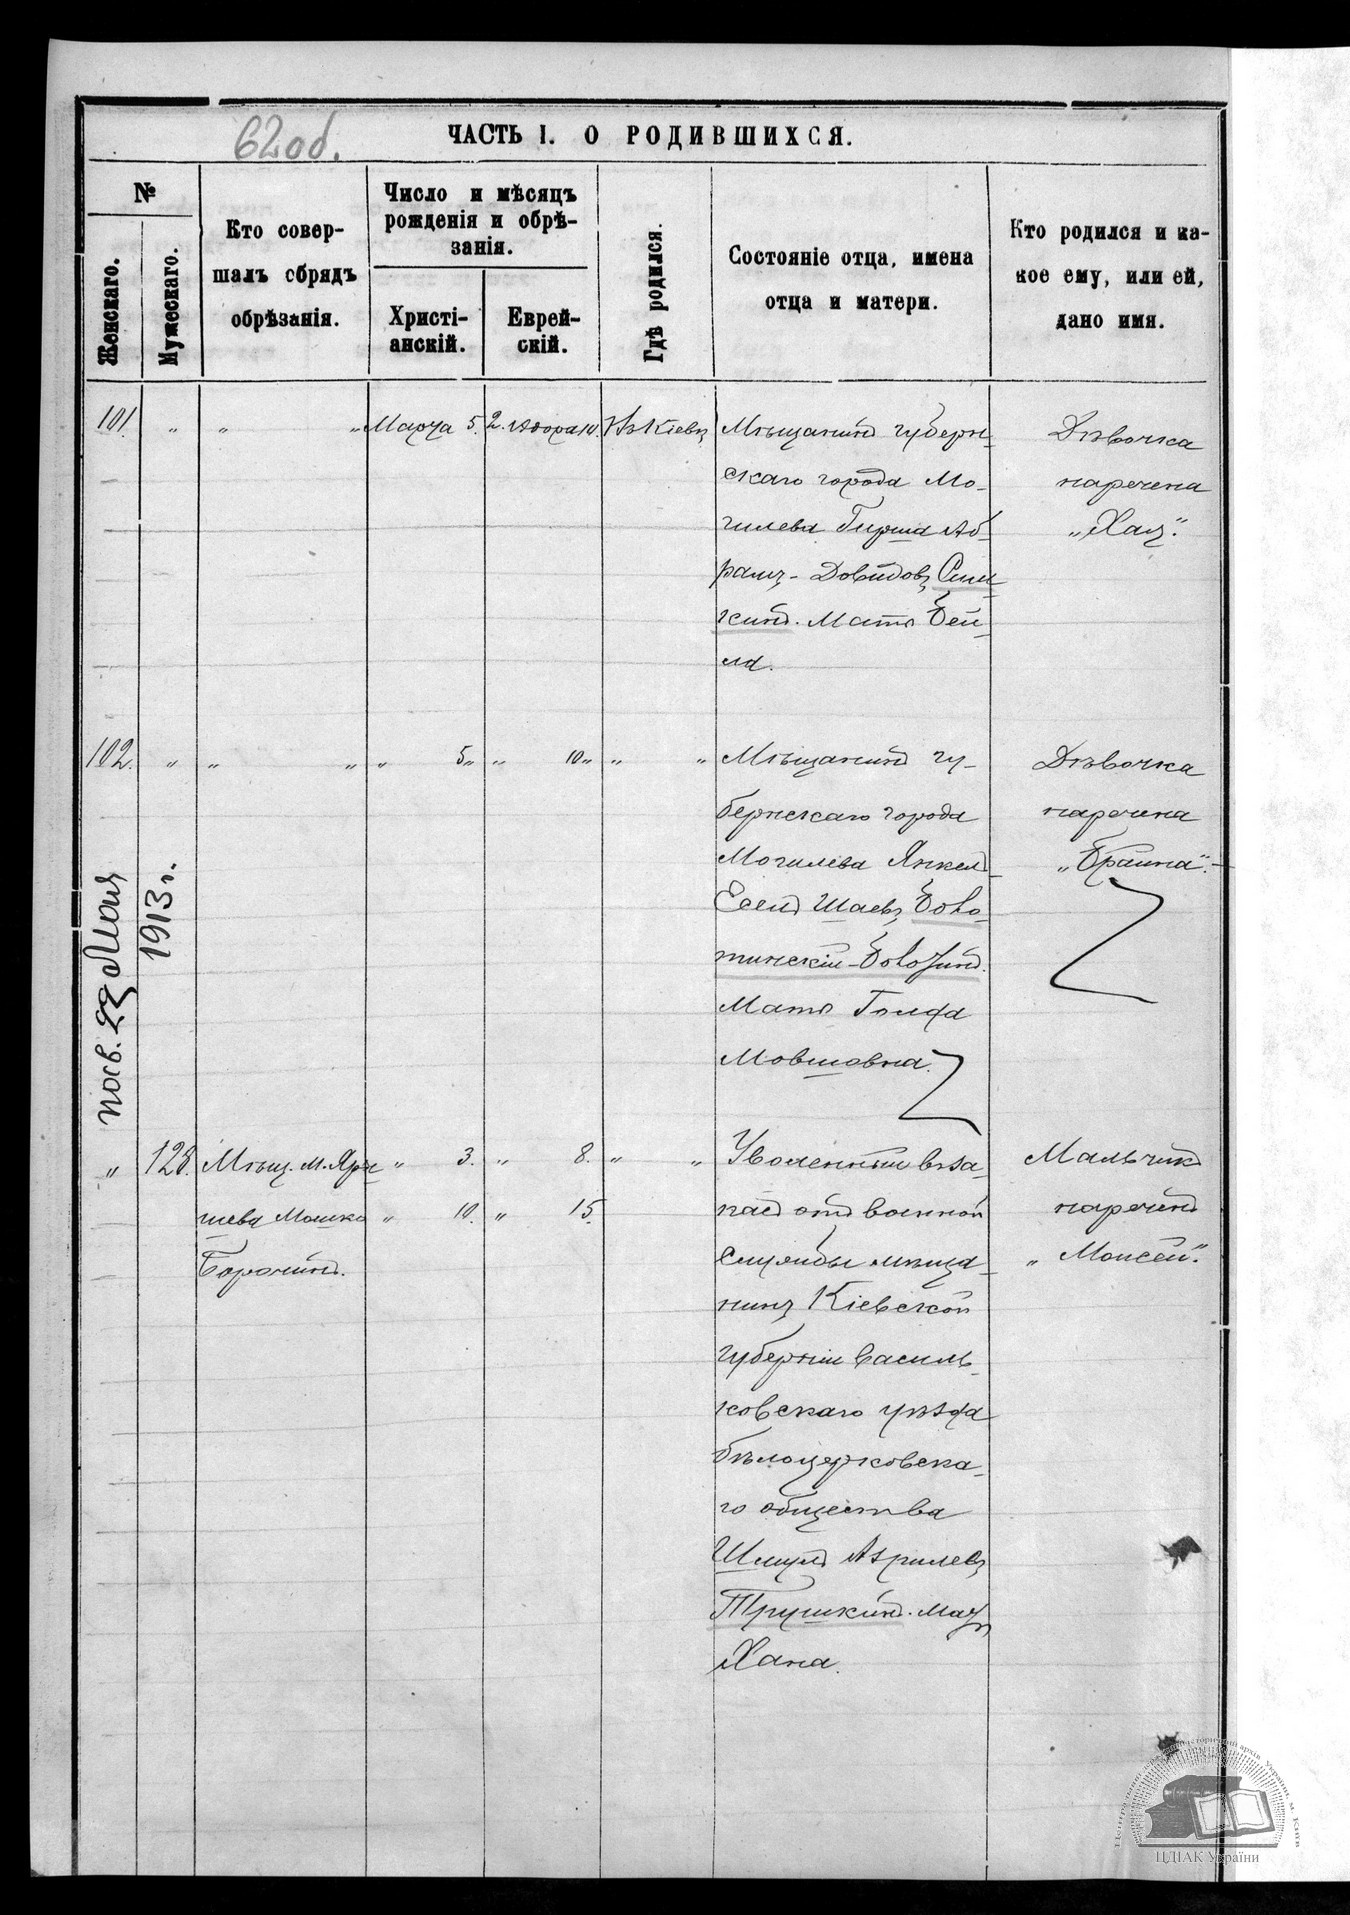 62об.
ЧАСТЬ I. О РОДИВШИХСЯ.
№
Женскаго.
Мужескаго.
Кто совер-
шалъ обрядъ
обрѣзанія.
Число и мѣсяцъ
рожденія и обрѣ-
занія.
Христі-
анскій.
Еврей-
скій.
Гдѣ родился.
Состояніе отца, имена
отца и матери.
Кто родился и ка-
кое ему, или ей,
дано имя.
101. „ „ „ Марта 5. 2. Адара 10. Въ Кіевѣ
Мѣщанинъ губерн-
скаго города Мо-
гилева Гирша Аб-
рамъ-Довидовъ
кинъ. Мать Бей-
ла.
Дѣвочка
наречена
„Хая“.
102. „ „ „ „ 5 „ „ 10 „ „ „
Мѣщанинъ гу-
бернскаго города
Могилева Янкель
Есель Шаевъ
Мать Голда
Мовшовна.
Дѣвочка
наречена
„Брайна“.
посв. 29 Мая
1913 г.
„ 123. Мѣщ. м. Яры-
шева Мошко
„ 3. „ 8. „ „
„ 10. „ 15.
Уволенный въ за-
пасъ отъ военной
службы мѣща-
нинъ Кіевской
губерніи Василь-
ковскаго уѣзда
бѣлоцерковска-
го общества
Шмулъ Азрилевъ
Трушкинъ. Мать
Хана.
Мальчикъ
нареченъ
„Моисей“.
ЦДІАК України